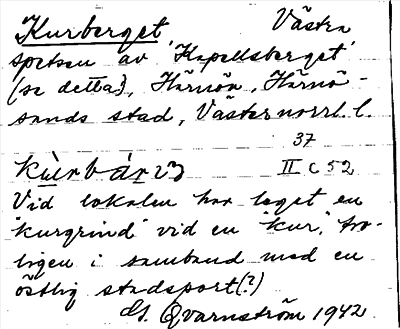 Kurberget, Västra
spetsen av 'Kapellsberget'
(se detta), Härnön, Härnö-
sands stad, Västernorrl. l.
37
kùrbárʒ II C 52
Vid lokalen har legat en
"kurgrind" vid en "kur", tro-
ligen i samband med en
östlig stadsport(?)
G. Qvarnström 1942